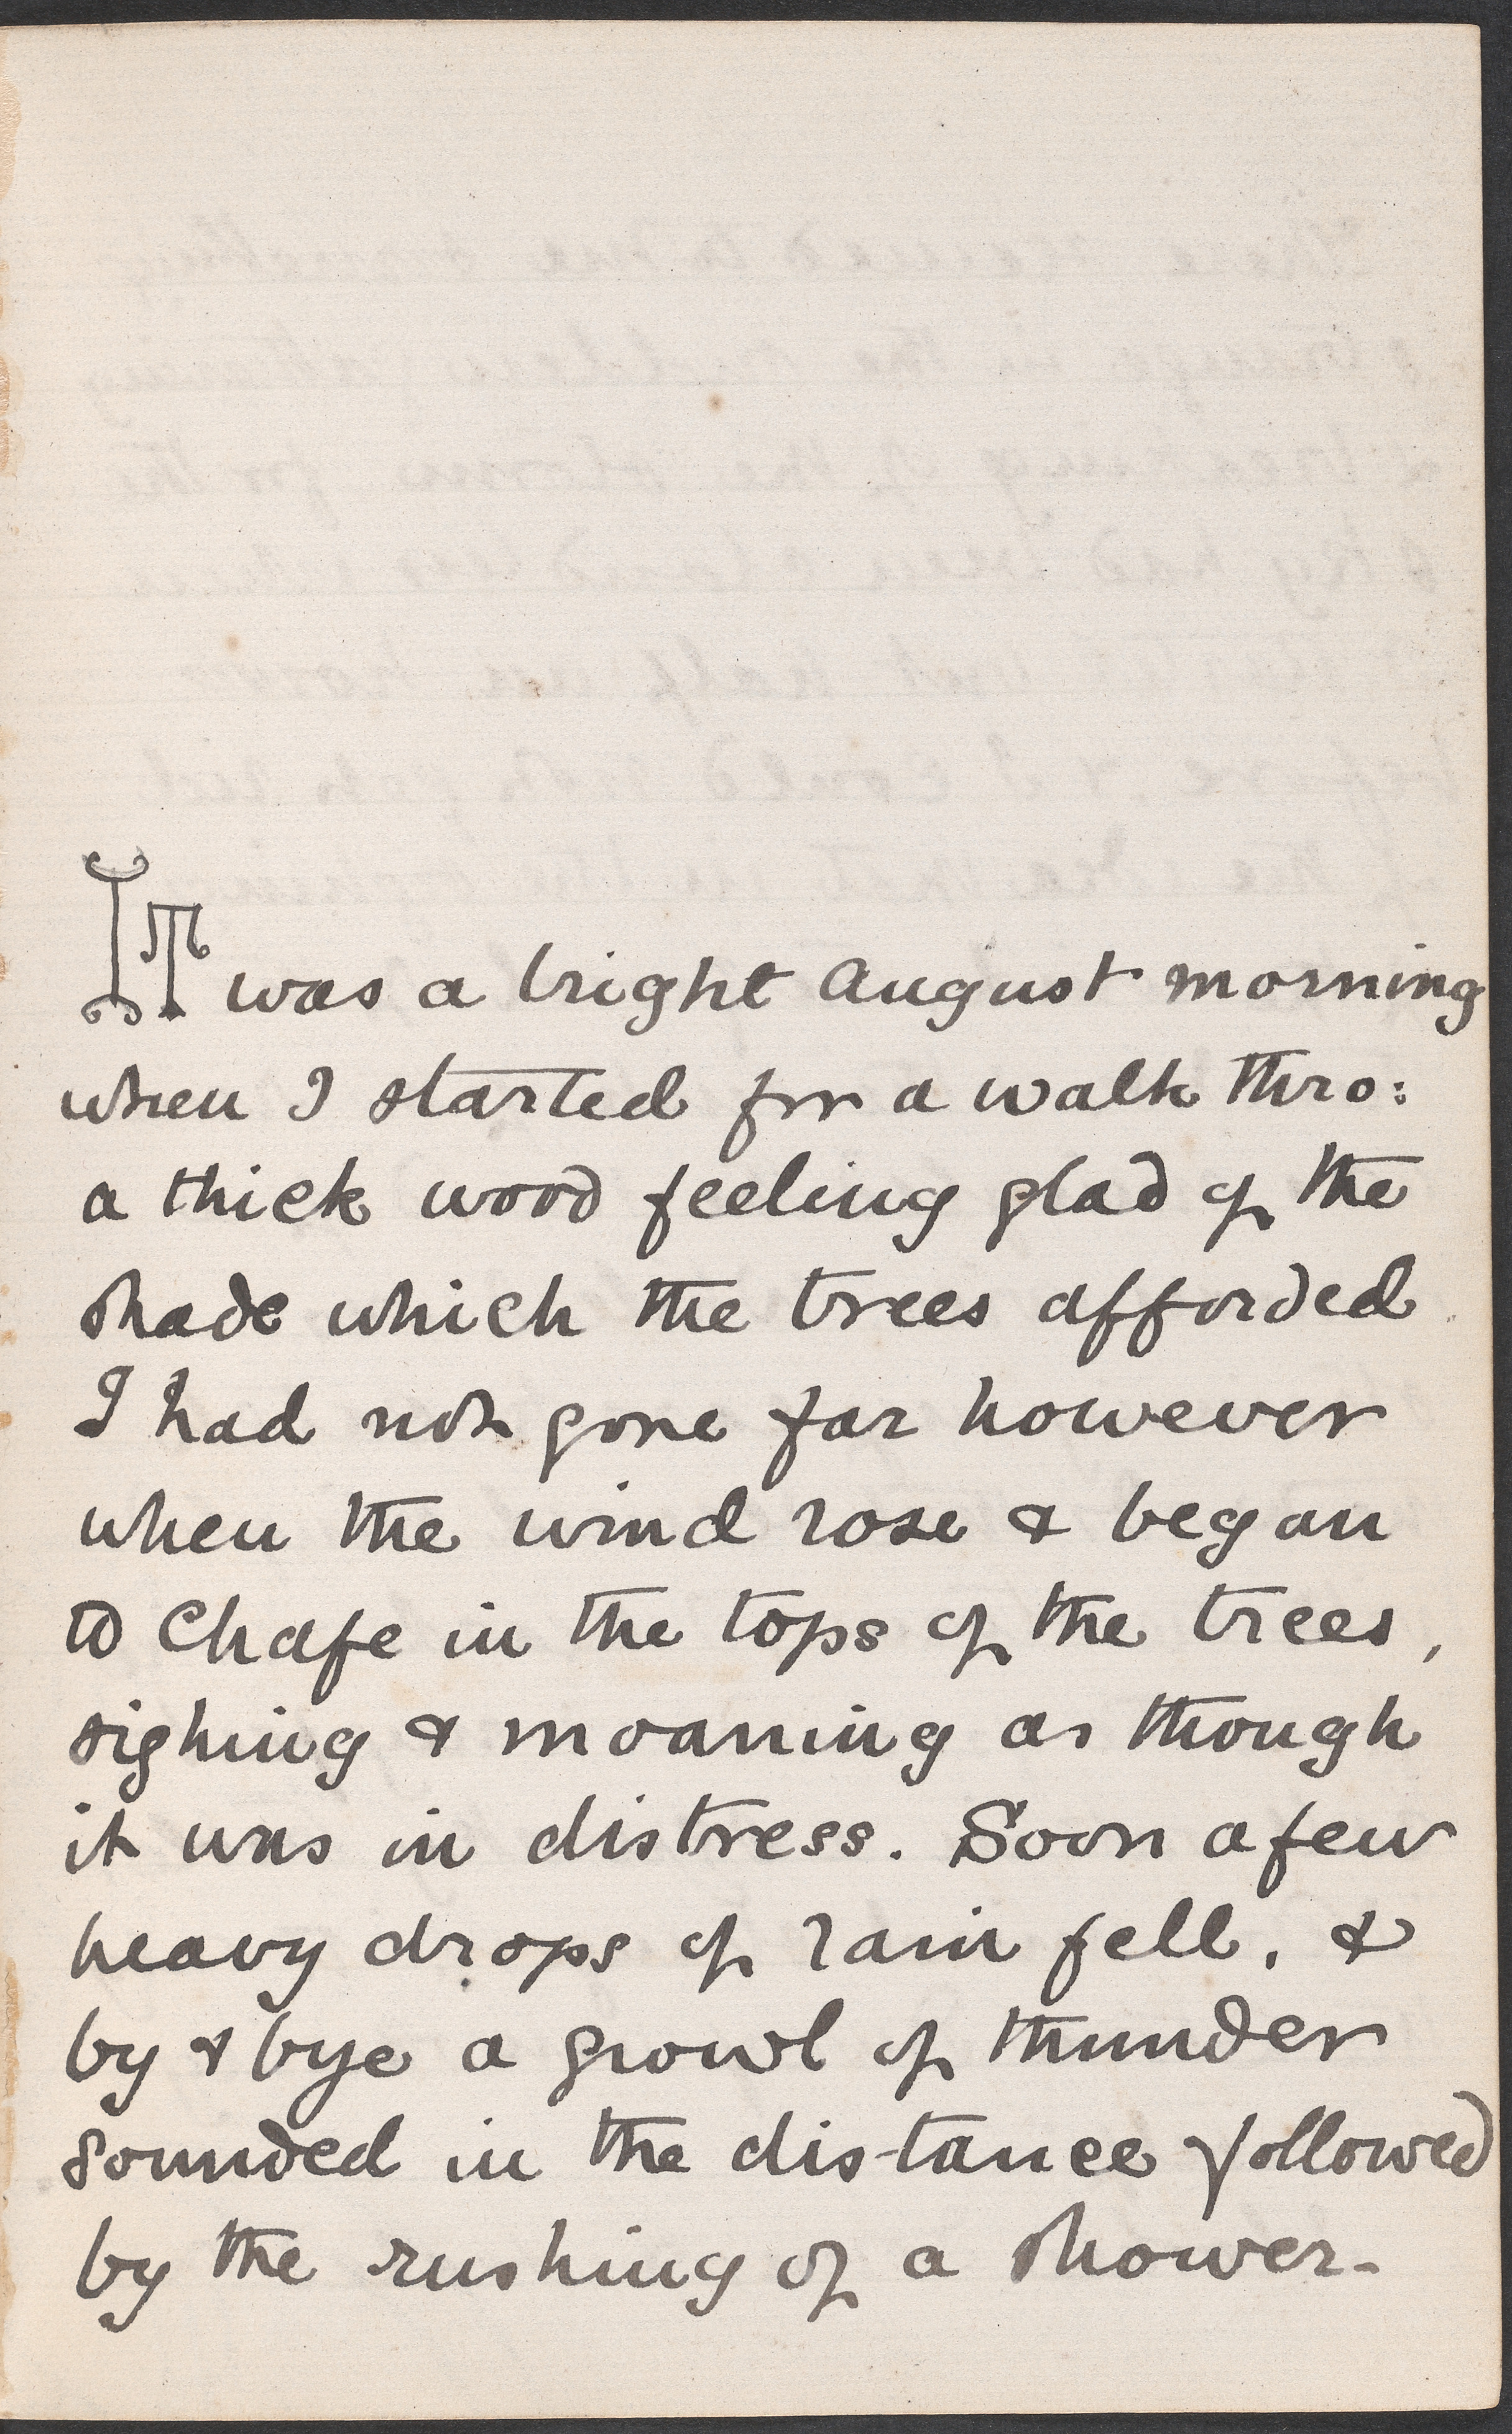 IT was a bright August morning
when I started for a walk thro:
a thick wood feeling glad of the
shade which the trees afforded
I had not gone far however
when the wind rose & began
to chafe in the tops of the trees,
sighing & moaning as though
it was in distress. Soon a few
heavy drops of rain fell, &
by & bye a growl of thunder
sounded in the distance followed
by the rushing of a shower-